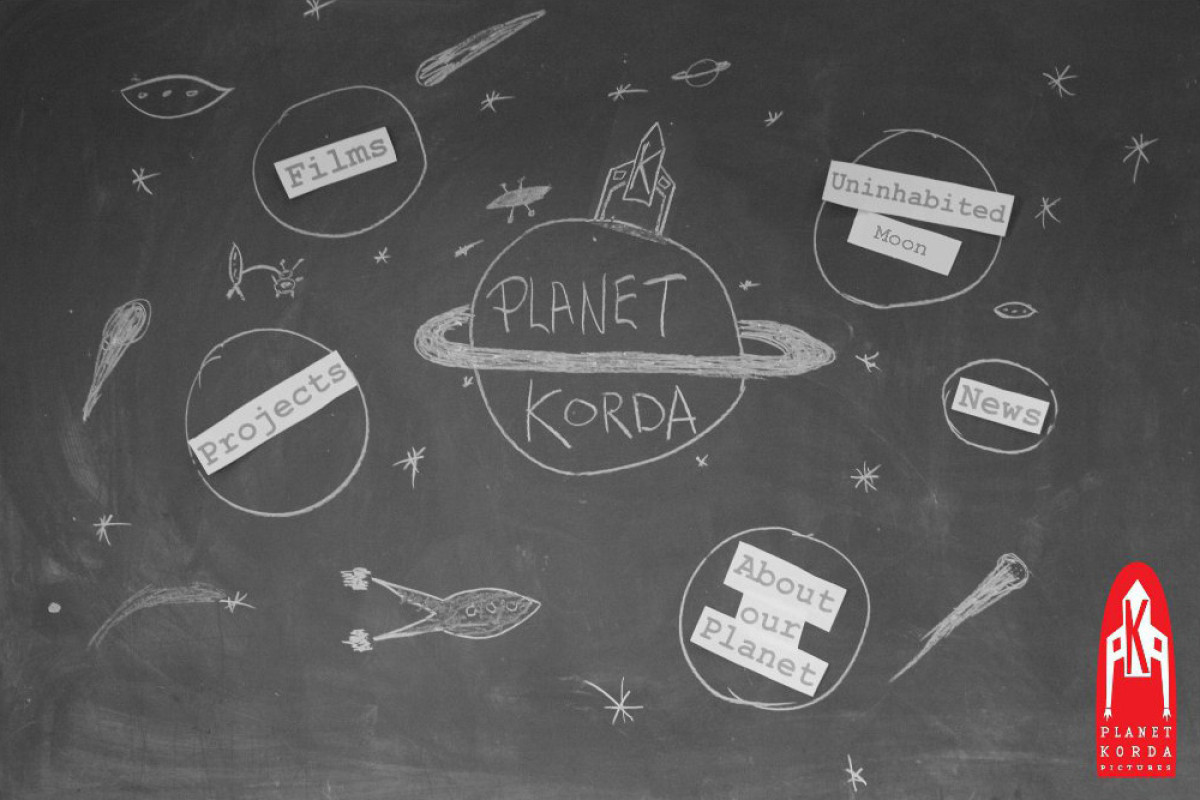 Films
Uninhabited
Moon
PLANET
KORDA
Projects
News
About
our
Planet
K
PLANET
KORDA
PICTURES